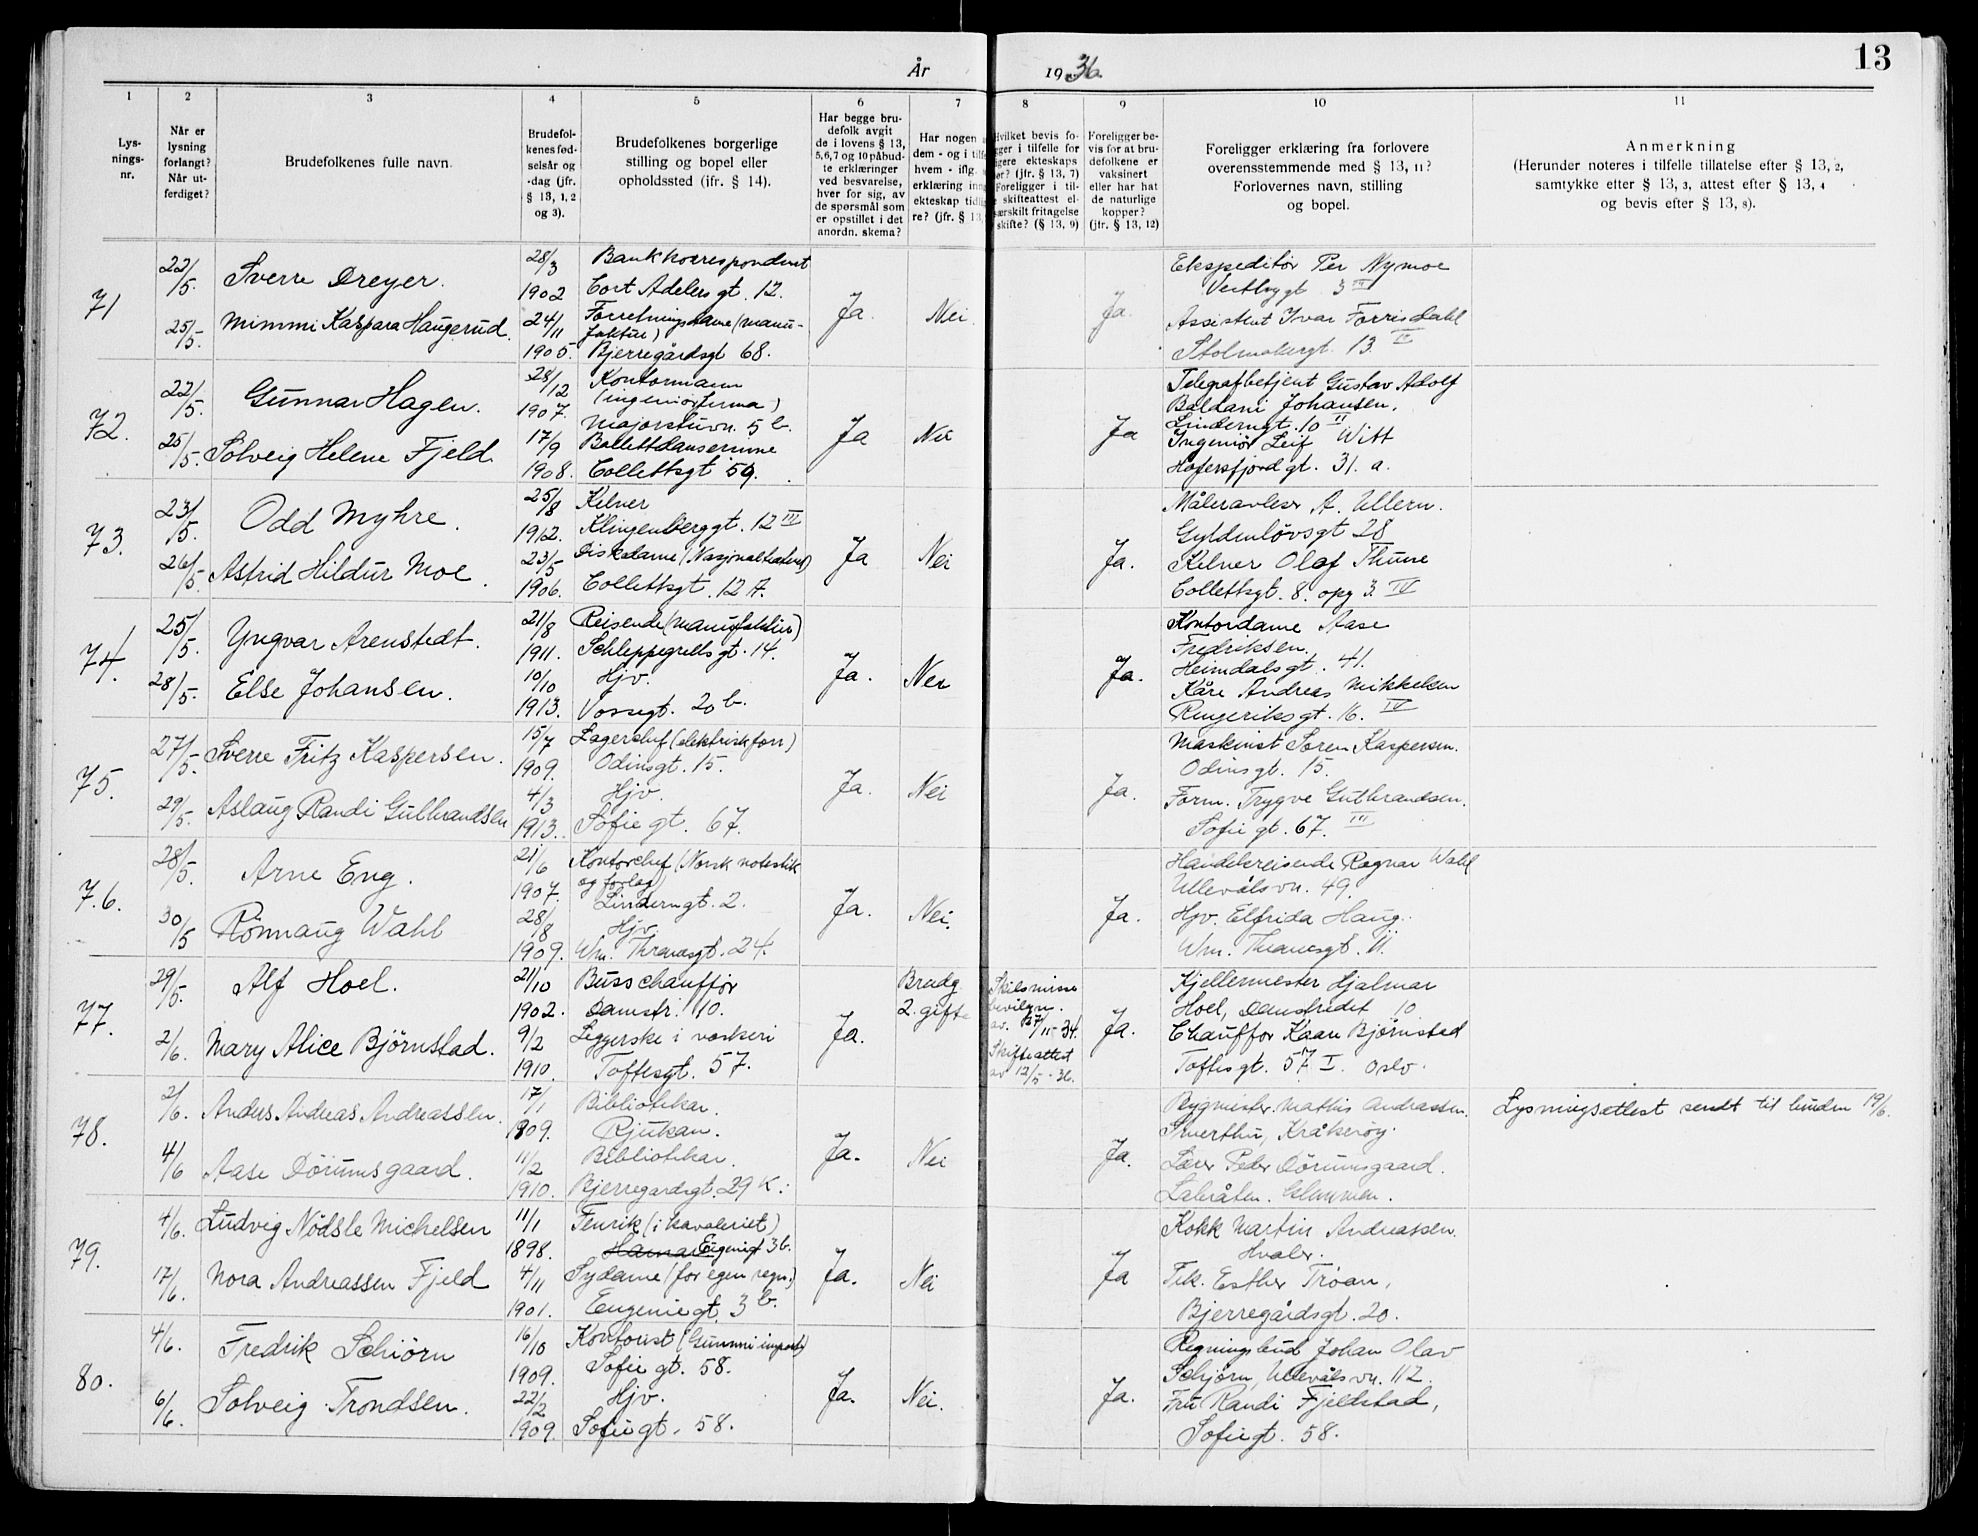 År 1936
13
1 2 3 4 5 6 7 8 9 10 11
Lys-
nings-
nr.
Når er
lysning
forlangt?
Når ut-
ferdiget?
Brudefolkenes fulle navn.
Brudefol-
kenes fød-
selsår og
-dag (jfr.
§ 13, 1, 2
og 3).
Brudefolkenes borgerlige
stilling og bopel eller
opholdssted (ifr. § 14).
Har begge bru-
defolk avgit
de i lovens § 13,
5,6,7 og 10 påbud-
te erklæringer
ved besvarelse,
hver for sig, av
de spørsmål som
er opstillet i det
anordn. skema?
Har nogen
dem - og i
hvem - iflg.
erklæring
ekteskap
re? (jfr. § 13,
Hvilket bevis fo-
i tilfelle for
ekteskaps
(jfr. § 13, 7)
Foreligger i til-
skifteattest el-
særskilt fritagelse
skifte? (§ 13, 9)
Foreligger be-
vis for at bru-
defolkene er
vaksinert
eller har hat
de naturlige
kopper?
(jfr. § 13, 12)
Foreligger erklæring fra forlovere
overensstemmende med § 13, 11?
Forlovernes navn, stilling
og bopel.
Anmerkning
(Herunder noteres i tilfelle tillatelse efter § 13, 2,
samtykke efter § 13, 3, attest efter § 13, 4
og bevis efter § 13, 8).
71
22/5.
25/5.
Sverre Dreyer.
Mimmi Kaspara Haugerud.
28/3
1902
24/11
1905.
Bankkorrespondent
Cort Adelers gt. 12.
Forretningsdame (manu-
faktur)
Bjerregårdsgt 68.
Ja.
Nei.
Ja.
Ekspeditør Per Nymoe
3 III
Assistent Ivar Forrisdahl
Stolmakergt. 13. IV
72.
22/5.
25/5.
Gunnar Hagen.
Solveig Helene Fjeld
28/12
1907.
17/9
1908.
Kontormann
(ingeniørfirma)
Majorstuvn. 5 b.
Ballettdanserinne
Collettsgt 59.
Ja
Nei
Ja
Telegrafbetjent Gustav Adolf
Baldani Johansen,
Linderngt. 10 II
Ingeniør Leif Witt
Hafersfjordgt. 31. a.
73.
23/5.
26/5.
Odd Myhre.
Astrid Hildur Moe.
25/8
1912.
23/5
1906.
Kelner
Klingenberggt. 12 III
Diskedame (Nasjonalteatret)
Collettsgt. 12 A.
Ja
Nei
Ja.
Måleravleser A. Ullern.
Gyldenløvsgt 28
Kelner Olaf Thune
Collettsgt. 8. opg 3. IV
74.
25/5.
28/5.
Yngvar Arenstedt.
Else Johansen.
21/8
1911.
10/10
1913.
Reisende (manufaktur)
Schleppegrells gt. 14.
Hjv.
Vossegt. 20 b.
Ja.
Nei
Ja.
Kontordame Aase
Fredriksen.
Heimdalsgt. 41.
Kåre Andreas Mikkelsen
Ringeriksgt. 16. IV
75.
27/5.
29/5.
Sverre Fritz Kaspersen.
Aslaug Randi Gulbrandsen
15/7
1909.
4/3
1913.
Lagerchef (elektrisk forr)
Odinsgt. 15.
Hjv.
Sofie gt. 67.
Ja.
Nei
Ja.
Maskinist Søren Kaspersen.
Odinsgt. 15.
Form. Trygve Gulbrandsen.
Sofie gt. 67. III
76.
28/5.
30/5
Arne Eng.
Rønnaug Wahl
21/6
1907.
28/8
1909.
Kontorchef (Norsk notestik
og forlag)
Linderngt. 2.
Hjv.
Wm. Thranesgt. 24.
Ja.
Nei.
Ja.
Handelsreisende Ragnar Wahl
Ullevålsvn. 49.
Hjv. Elfrida Haug.
Wm. Thranesgt. 11.
77.
29/5.
2/6.
Alf Hoel.
Mary Alice Bjørnstad.
21/10
1902.
9/2
1910.
Busschauffør
Damstr. 10.
Leggerske i vaskeri
Toftesgt. 57.
Ja.
Brudg
2. gifte
Skilsmisse
bevilgn.
av. 27/11-34.
Skifteattest
av 12/5-36.
Ja.
Kjellermester Hjalmar
Hoel, Damstredet 10
Chauffør Kaare Bjørnstad
Toftesgt. 57. I. Oslo.
78.
2/6.
4/6
Anders Andreas Andreassen.
Aase Dørumsgaard.
17/1
1909.
11/2
1910.
Bibliotekar.
Rjukan.
Bibliotekar.
Bjerregårdsgt. 29 K.
Ja.
Nei
Ja.
Bygmester. Mathis Andreassen.
Kråkerøy.
Lærer Peder Dørumsgaard.
Glemmen.
Lysningsattest sendt til bruden 19/6.
79.
4/6.
17/6.
Ludvig Nødsle Michelsen
Nora Andreassen Fjeld
11/1
1898.
4/11
1901.
Fenrik (i kavaleriet)
Hamar Eugenigt 3b.
Sydame (for egen regn.)
Eugeniegt. 3 b.
Ja.
Nei
Ja
Kokk Martin Andreassen.
Hvaler.
Frk. Esther Trøan,
Bjerregårdsgt. 20.
80.
4/6.
6/6.
Fredrik Schiörn
Solveig Trondsen.
16/10
1909.
22/2
1909.
Kontorist (Gummi import)
Sofie gt. 58.
Hjv.
Sofiegt. 58.
Ja.
Nei.
Ja.
Regningsbud Johan Olav
Schjörn, Ullevålsvn. 112.
Fru Randi Fjeldstad,
Sofiegt. 58.